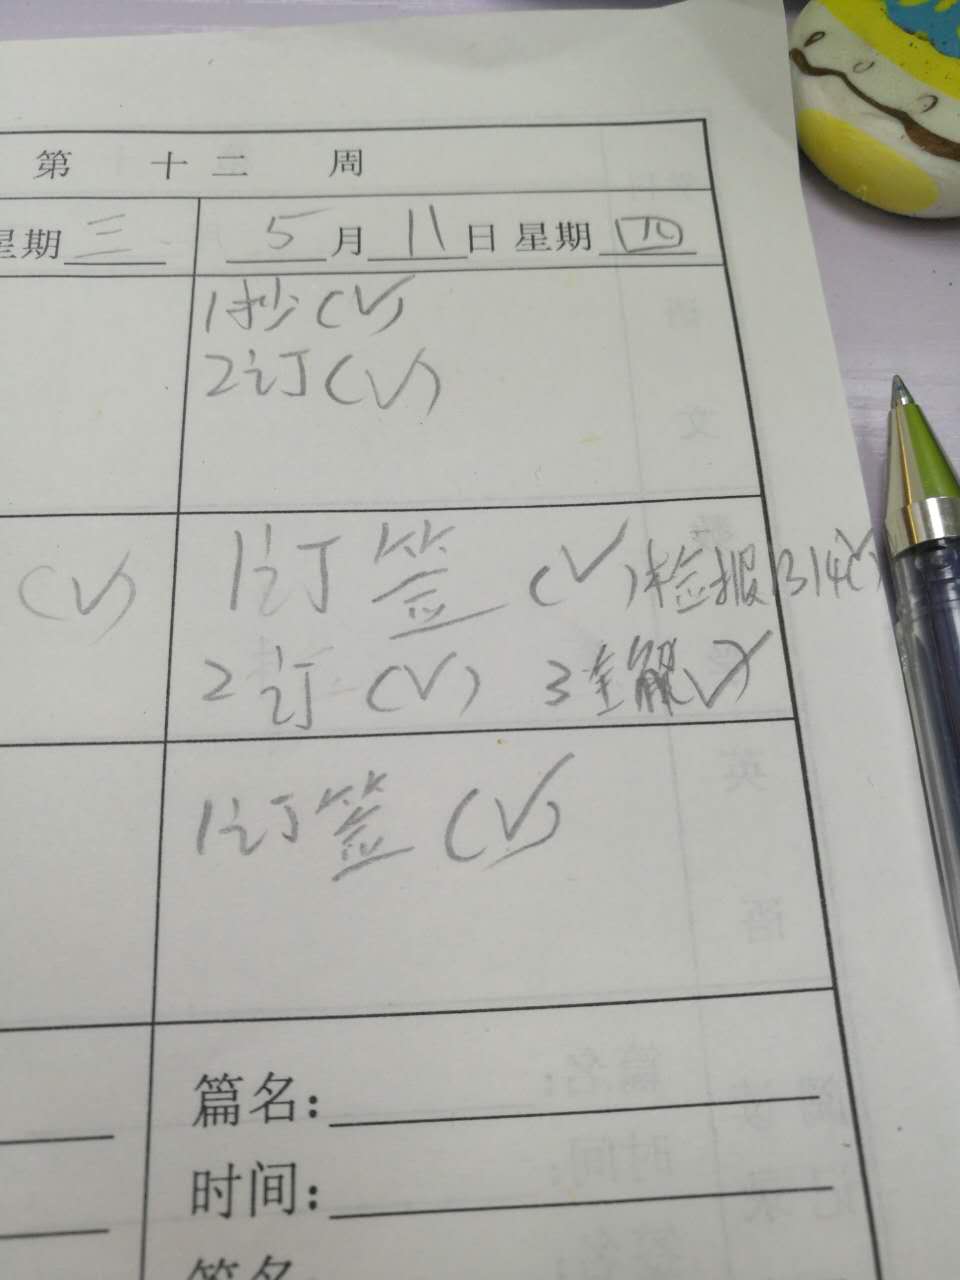 第 十二 周
星期三 5月11日星期四
1抄(√)
2订(√)
(√) 1订签(√)检报1314(√)
2订(√) 3全解(√)
1订签(√)
篇名：
时间：
签名